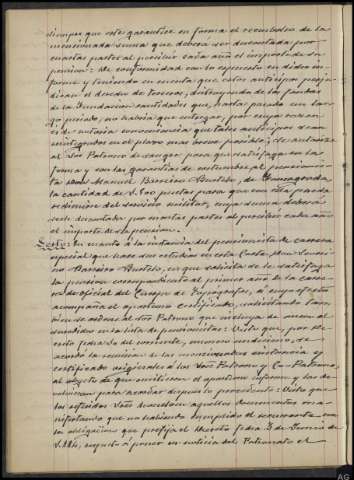 siempre que este garantice en forma el reembolso de la
mencionada suma que deberá ser descontada por
cuartas partes al percibir cada año el importe de su
pension: De conformidad con lo expuesto en dicho in-
forme y teniendo en cuenta que estos anticipos perju-
dican el derecho de tercero, distrayendo de los fondos
de la Fundacion cantidades que, hasta pasado un lar-
go periodo, no habria que entregar, por cuya razon
es de notoria conveniencia que tales anticipos sean
reintegrados en el plazo mas breve posible; Se autoriza
al Sor Patrono de sangre para que satisfaga en la
forma y con las garantias de costumbre al pensionis-
ta Don Manuel Barreiro de
la cantidad de 1.500 pesetas para que con ella pueda
redimirse del servicio militar, cuya suma deberá
serle descontada por cuartas partes al percibir cada año
el importe de su pension.
Sexto: En cuanto á la instancia del pensionista de carrera
especial que hace sus estudios en esta Corte, Don
Barreiro en que solicita se le satisfaga
la pension correspondiente al primer año de la carre-
ra de oficial del Cuerpo de Topografos, á cuyo efecto
acompaña el oportuno certificado, solicitando tam-
bien se ordene al Sor Patrono que incluya de nuevo al
en la lista de pensionistas: Visto que, por de-
creto fecha de del corriente, numero undécimo, se
acordó la remision de las mencionadas instancia y
certificado originales á los Sres Patrono y Co-Patrono,
al objeto de que emitiesen el oportuno informe y los de-
volvieran para acordar despues lo procedente: Visto que
los referidos Sres devuelven aquellos documentos ma-
nifestando que no habiendo cumplido el recurrente con
la obligacion que prefija el Decreto fecha 3 de Junio de
1.886, respecto á poner en noticia del Patronato el
AG